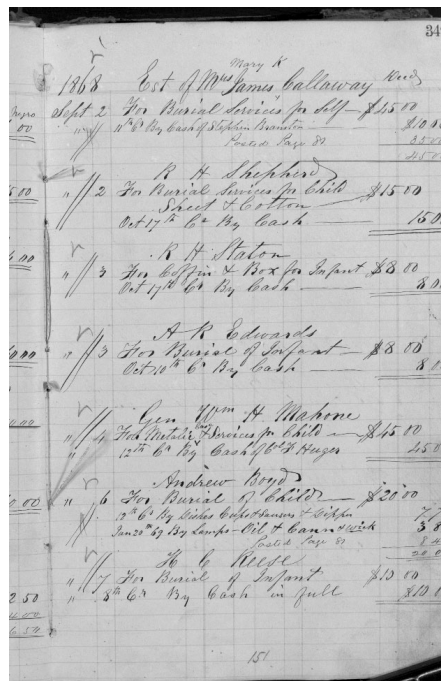 34
Mary K
1868 Est of Mrs James Callaway Decd
Sept 2 For Burial Services for Self — $45 00
" 11th Cr By Cash of Stephin $10 00
Posted Page 81 35 00
45 00
R H Shepherd
" 2 For Burial Services for Child $15 00
Sheet & Cotton
Oct 17th Cr By Cash 15 0
R H Staton
" 3 For Coffin & Box for Infant $8 00
Oct 17th Cr By Cash — 8 0
A R Edwards
" 3 For Burial of Infant — $8 00
Oct 10th Cr By Cash — 8 0
Gen Wm H Mahone
" 4 For Metalic Case & Services for Child — $45 00
" 12th Cr By Cash of Col F Huger 45 0
Andrew Boyd
" 6 For Burial of Child — $20 00
12th Cr By Dishes Cups & Saucers & 7
Jan 20th 69 By Lamps — Oil & Cann & Wick 3 8
Posted Page 81 8 4
20 0
H C Reese
" 7 For Burial of Infant $10 00
" 8th Cr By Cash in full $10 0
151